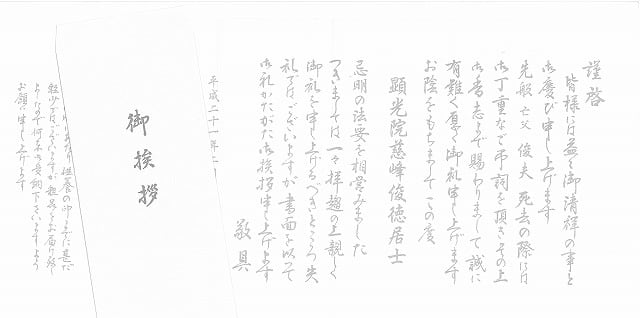 謹啓
皆様には益々御清祥の事と
御慶び申し上げます
先般 亡父 俊夫 死去の際には
御丁重なご弔詞を頂きその上
御香志まで賜わりまして誠に
有難く厚く御礼申し上げます
お陰をもちましてこの度
顕光院慈峰俊徳居士
忌明の法要を相営みました
つきましては一々拝趨の上親しく
御礼を申し上げるべきところ失
礼ではございますが書面を以って
御礼かたがた御挨拶申し上げます
敬具
平成二十一年二
御挨拶
粗供養の印までに
粗品をお届け致し
ましたので何卒お受納下さいますよう
お願い申し上げます